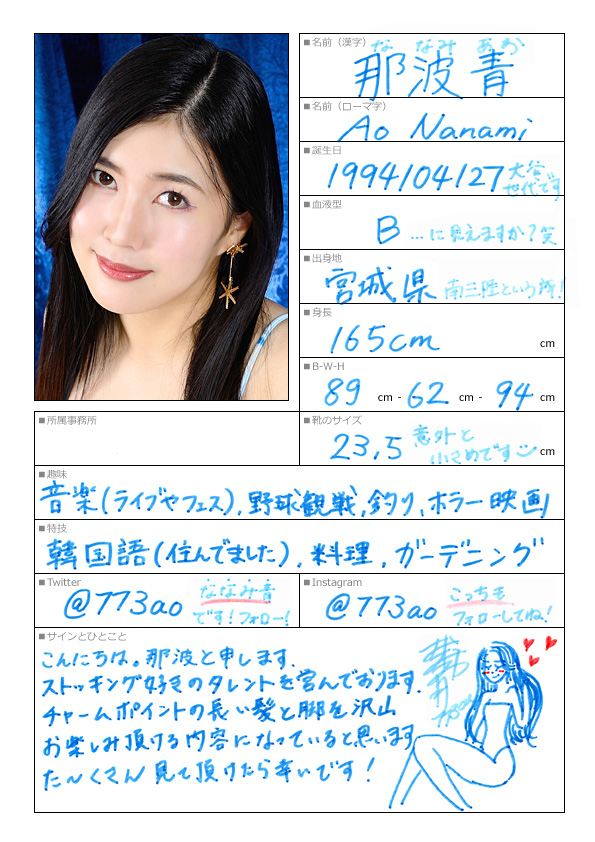 ■名前（漢字）
ななみ あお
那波青
■名前（ローマ字）
Ao Nanami
■誕生日
1994/04/27 大谷世代です
■血液型
B …に見えますか？笑
■出身地
宮城県 南三陸という所！
■身長
165cm cm
■B-W-H
89 cm - 62 cm - 94 cm
■所属事務所
■靴のサイズ
23,5 意外と小さめです cm
■趣味
音楽(ライブやフェス),野球観戦,釣り,ホラー映画
■特技
韓国語(住んでました),料理,ガーデニング
■Twitter
@773ao ななみ青です！フォロー！
■Instagram
@773ao こっちもフォローしてね！
■サインとひとこと
こんにちは。那波と申します.
ストッキング好きのタレントを営んでおります.
チャームポイントの長い髪と脚を沢山
お楽しみ頂ける内容になっていると思います
た〜くさん見て頂けたら幸いです！